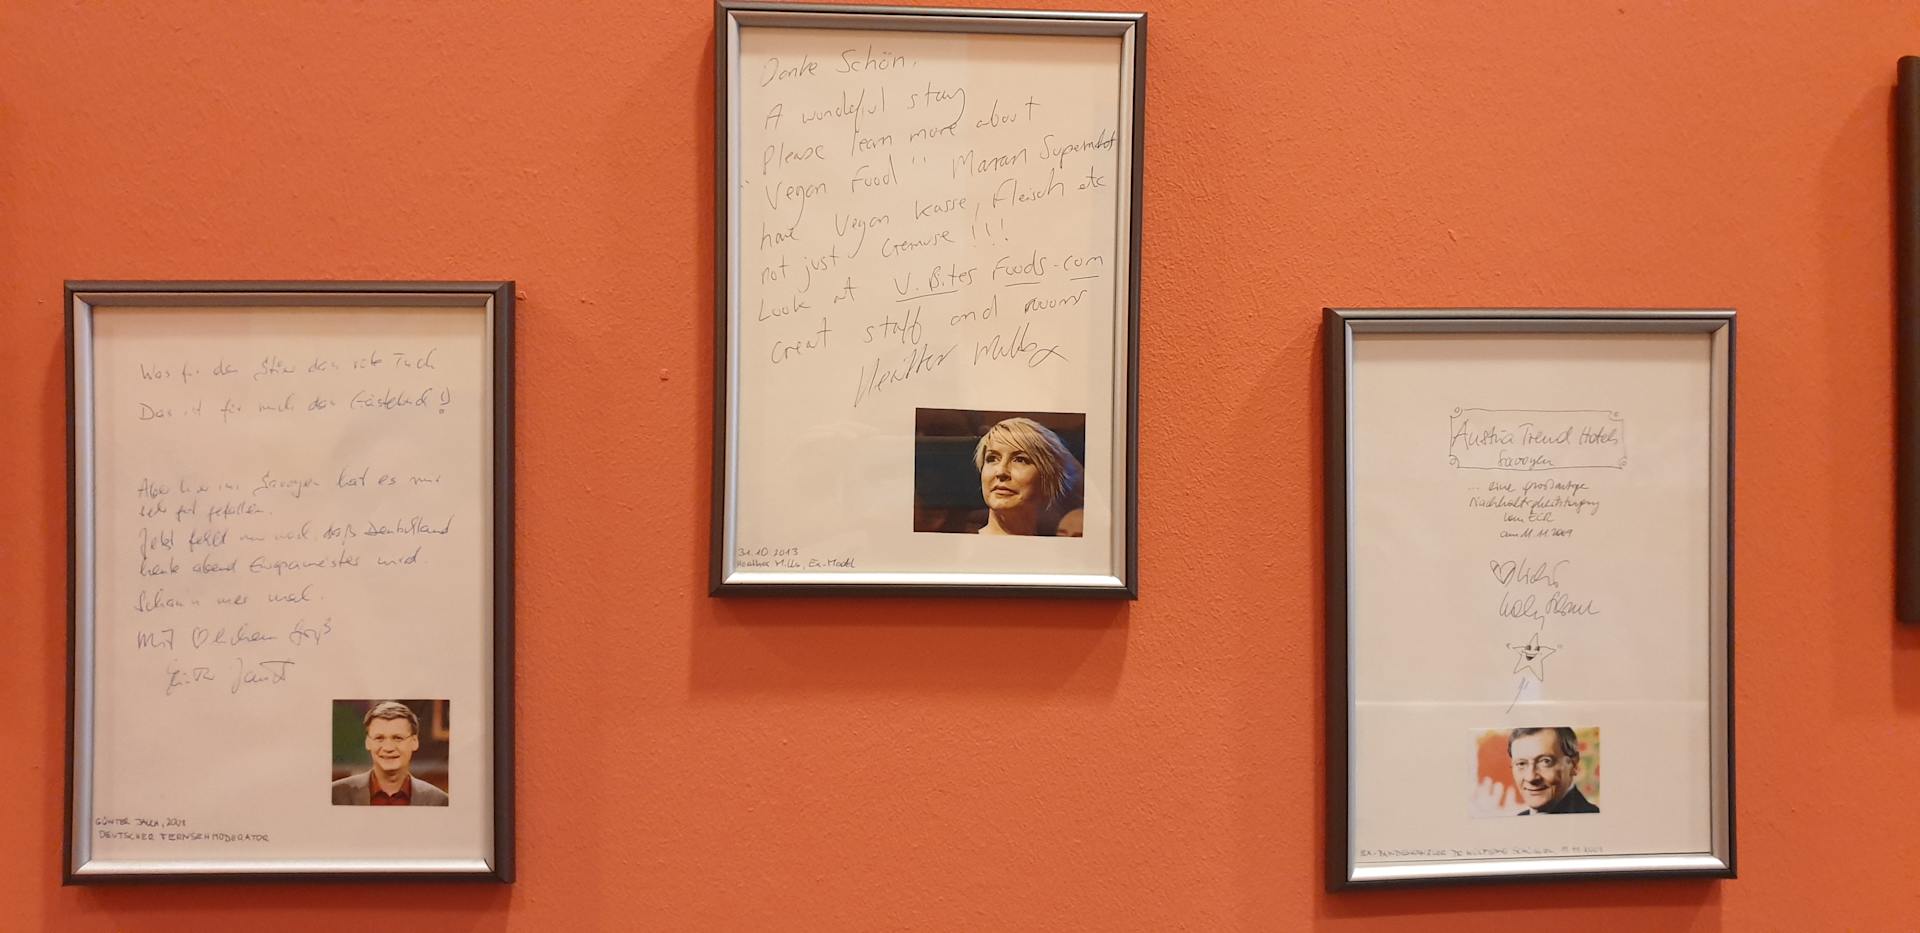 Was für den Stier das rote Tuch
Das ist für mich das Gästebuch!
Aber hier im Savoyen hat es mir
sehr gut gefallen.
Jetzt fehlt nur noch, daß Deutschland
heute abend Europameister wird.
Schau'n mer mal.
Mit ♡lichem Gruß
Günther Jauch
GÜNTER JAUCH, 2008
DEUTSCHER FERNSEHMODERATOR
Danke Schön,
A wonderful stay
Please learn more about
"Vegan Food" Maran Supermarkt
have Vegan Kasse, Fleisch etc
not just Gemuse!!!
Look at V.Bites Foods.com
Great staff and rooms
Heather Mills x
31.10.2013
Heather Mills, Ex-Model
Austria Trend Hotels
Savoyen
... eine großartige
vom
am 11.11.2009
EX-BUNDESKANZLER DR. WOLFGANG SCHÜSSEL 11.11.2009